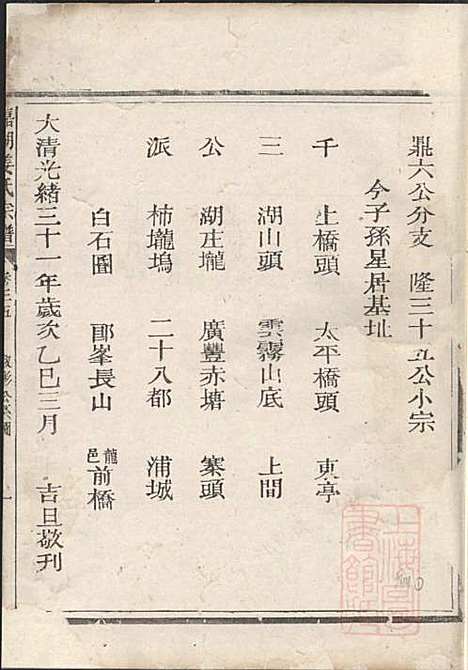 鼎六公分支　隆三十五公小宗
今子孫星居基址
千　上橋頭　太平橋頭　東亭
三　湖山頭　雲霧山底　上間
公　湖庄壠　廣豐赤塘　寨頭
派　柿壠塢　二十八都　浦城
白石圕　郎峯長山　龍邑前橋
大清光緒三十一年歲次乙巳三月　吉旦敬刊
氏宗譜
上海圖書館藏